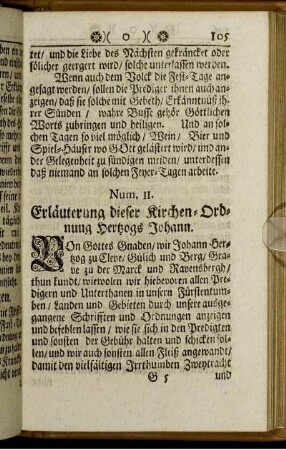 ( o ) 105
tet/ und die Liebe des Nächsten gekräncket oder
sölicher geergert wird/ solche unterlassen werden.
Wenn auch dem Volck die Fest-Tage an-
gesagt werden/ sollen die Prediger ihnen auch an-
zeigen/ daß sie solche mit Gebeth/ Erkänntnuß ih-
rer Sünden/ wahre Busse gehör Göttlichen
Worts zubringen und heiligen. Und an sol-
chen Tagen so viel möglich/ Wein/ Bier und
Spiel-Häuser wo GOtt gelästert wird/ und an-
der Gelegenheit zu sündigen meiden/ unterdessen
daß niemand an solchen Feyer-Tagen arbeite.
Num. II.
Erläuterung dieser Kirchen-Ord-
nung Hertzogs Johann.
VOn Gottes Gnaden/ wir Johann Her-
tzog zu Cleve/ Gülich und Berg/ Gra-
ve zu der Marck und Ravensbergh/
thun kundt/ wiewolen wir hiebevoren allen Pre-
digern und Unterthanen in unsern Fürstentum-
ben/ Landen und Gebieten durch unsere ausge-
gangene Schrifften und Ordnungen anzeigen
und befehlen lassen/ wie sie sich in den Predigten
und sonsten der Gebühr halten und schicken sol-
len/ und wir auch sonsten allen Fleiß angewandt/
damit den vielfältigen Irrthumben Zweytracht
G 5 und